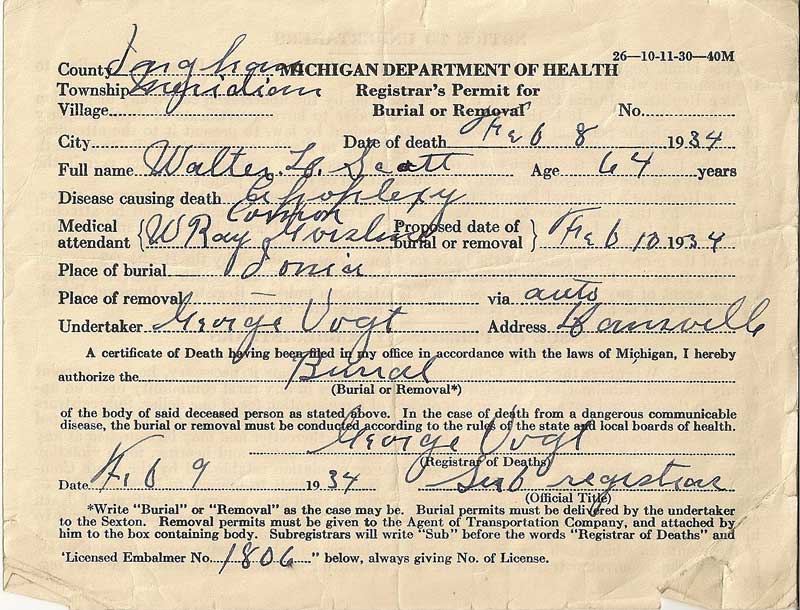 26—10-11-30—40M
County Ingham MICHIGAN DEPARTMENT OF HEALTH
Township Meridian Registrar's Permit for
Village Burial or Removal No.
City Date of death Feb 8 1934
Full name Walter L. Scott Age 64 years
Disease causing death Apoplexy
Coroner
Medical attendant { W Ray Gorsline Proposed date of burial or removal } Feb 10 1934
Place of burial Ionia
Place of removal — via auto
Undertaker George Vogt Address Dansville
A certificate of Death having been filed in my office in accordance with the laws of Michigan, I hereby
authorize the Burial
(Burial or Removal*)
of the body of said deceased person as stated above. In the case of death from a dangerous communicable
disease, the burial or removal must be conducted according to the rules of the state and local boards of health.
George Vogt
(Registrar of Deaths)
Date Feb 9 1934 Sub registrar
(Official Title)
*Write "Burial" or "Removal" as the case may be. Burial permits must be delivered by the undertaker
to the Sexton. Removal permits must be given to the Agent of Transportation Company, and attached by
him to the box containing body. Subregistrars will write "Sub" before the words "Registrar of Deaths" and
'Licensed Embalmer No. 1806 " below, always giving No. of License.